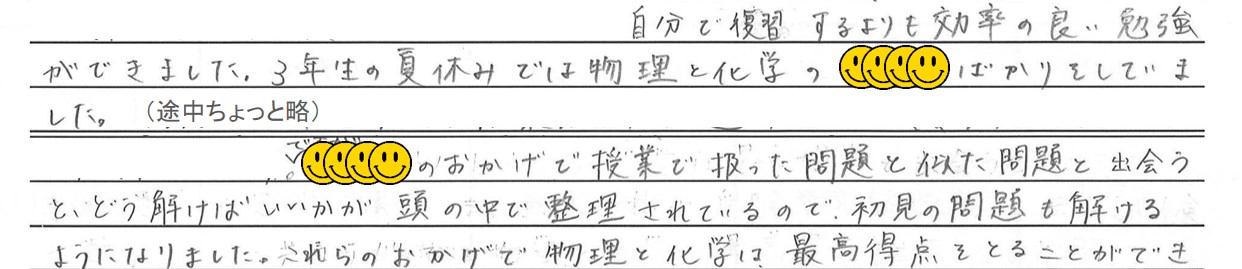 自分で復習するよりも効率の良い勉強
ができました。3年生の夏休みでは物理と化学の
ばかりをしていま
した。（途中ちょっと略）
のおかげで授業で扱った問題と似た問題と出会う
と、どう解けばいいかが頭の中で整理されているので、初見の問題も解ける
ようになりました。これらのおかげで物理と化学は最高得点をとることができ